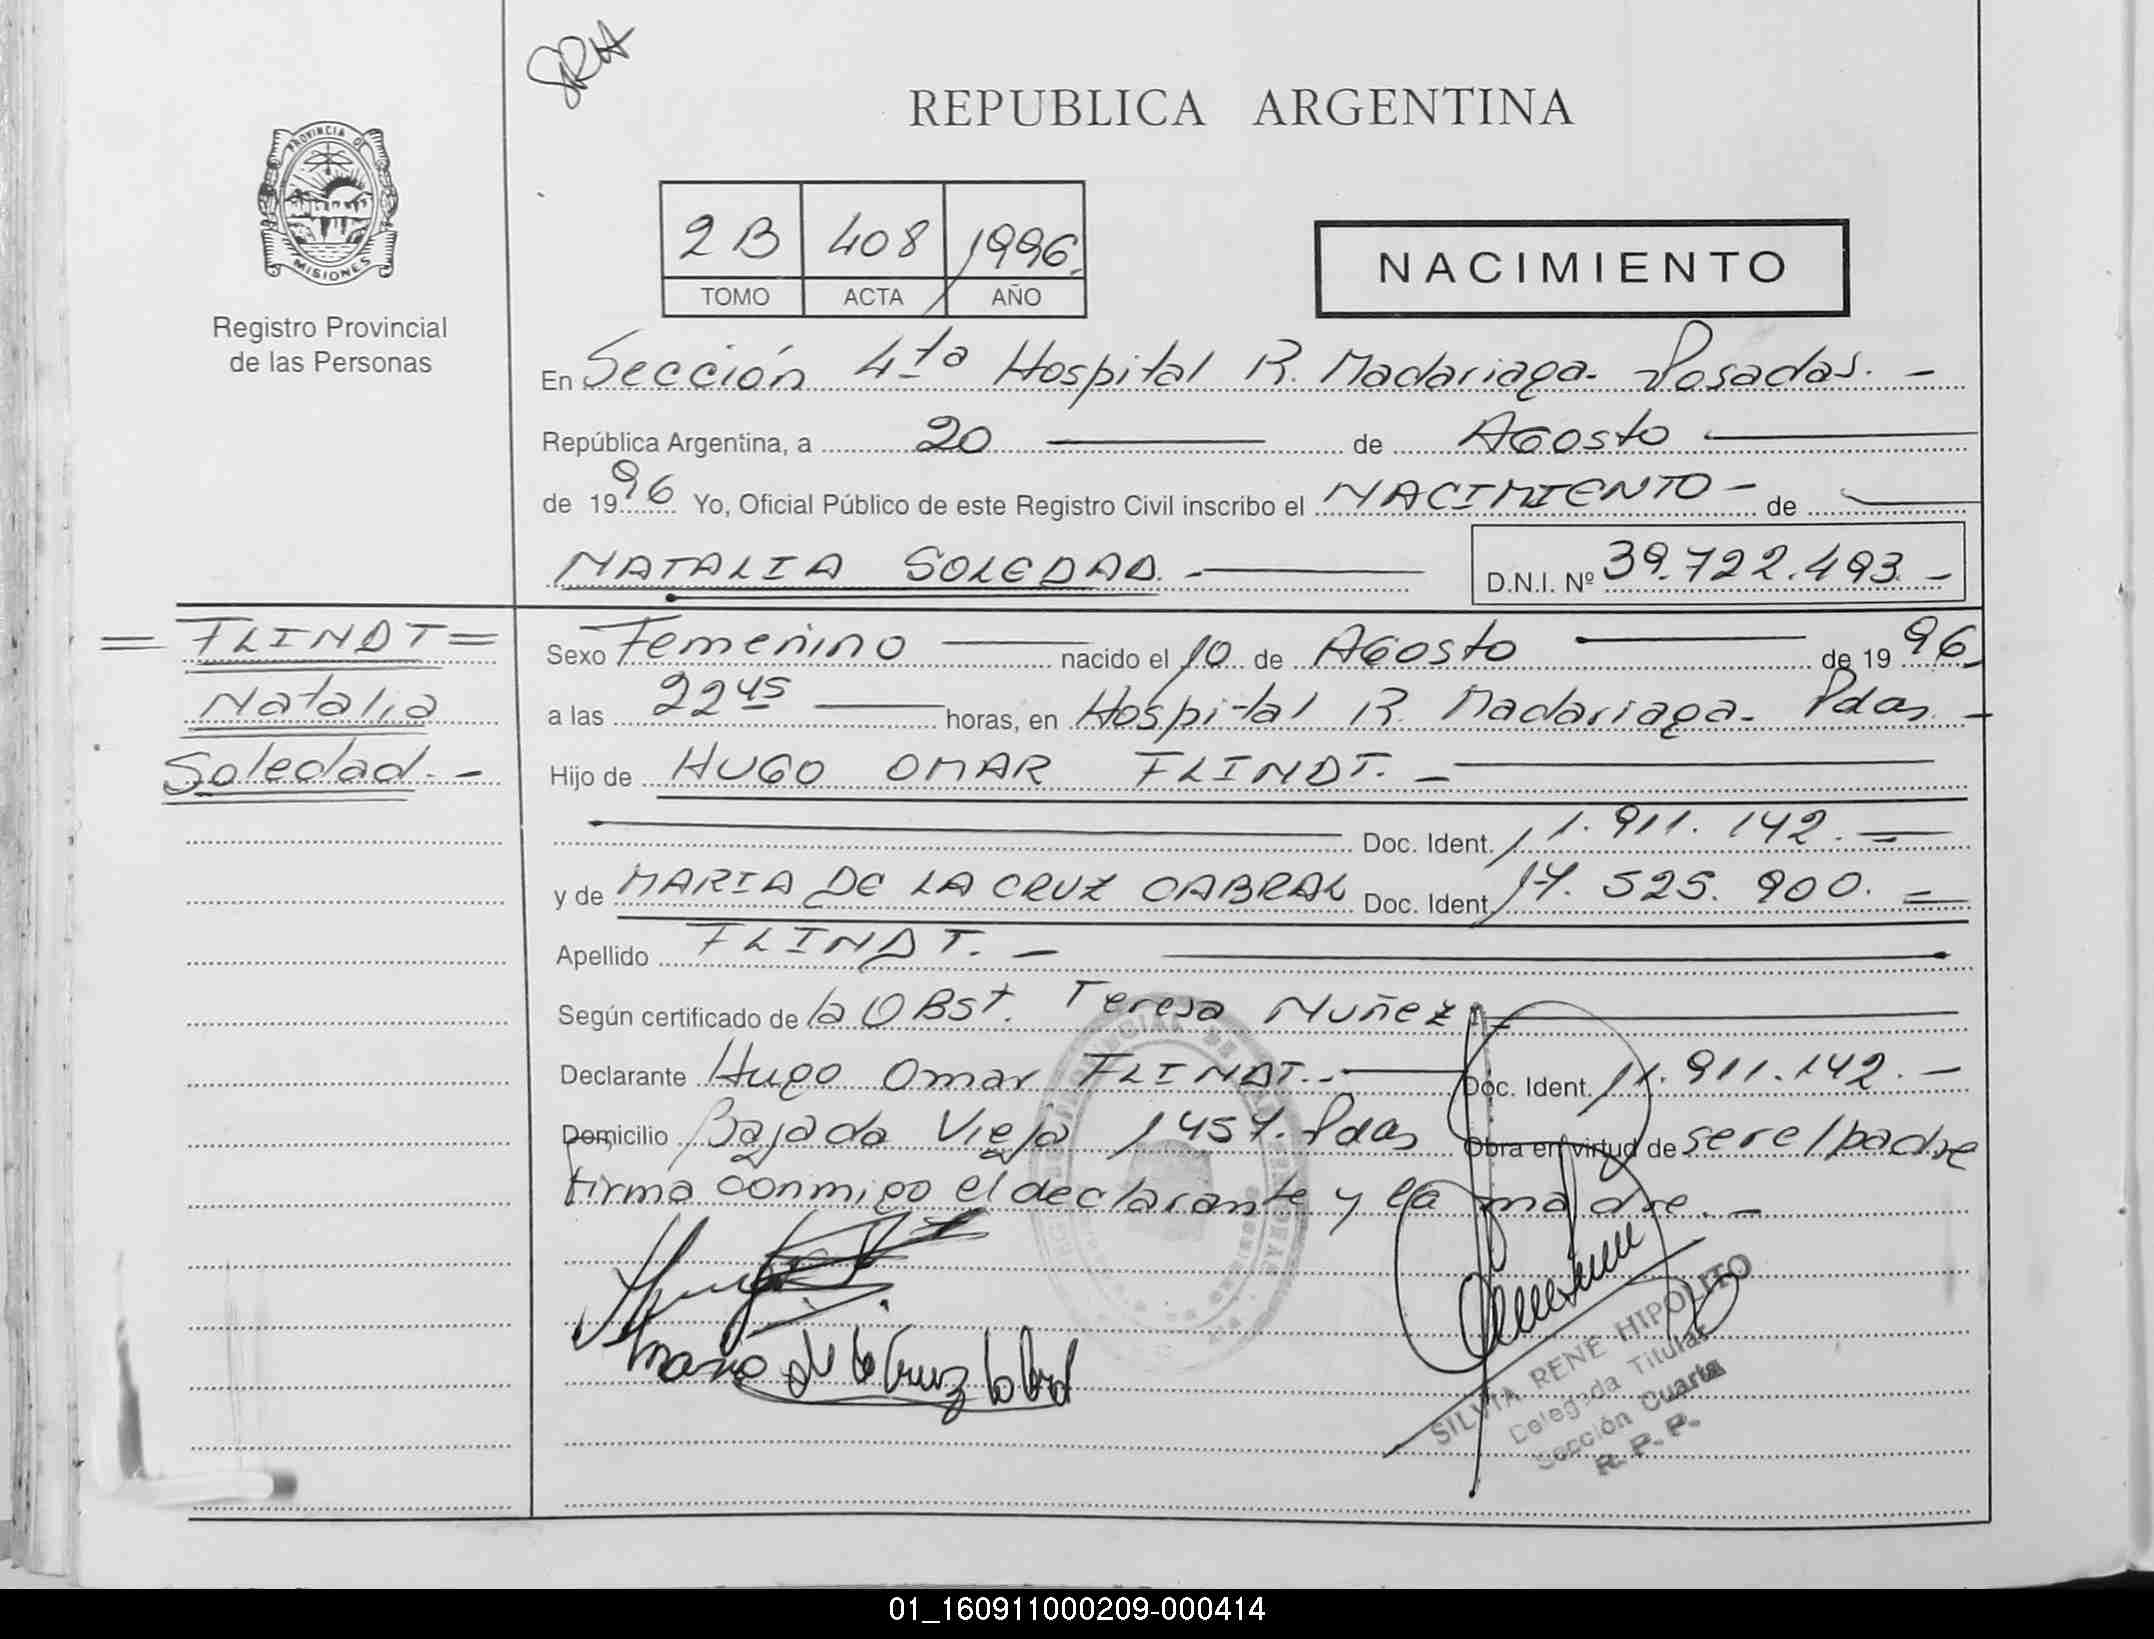 SRH
REPUBLICA ARGENTINA
PROVINCIA DE
MISIONES
Registro Provincial
de las Personas
2B 408 1996.
TOMO ACTA AÑO
NACIMIENTO
En Sección 4ta Hospital R. Madariaga - Posadas. -
República Argentina, a 20 de Agosto
de 1996 Yo, Oficial Público de este Registro Civil inscribo el NACIMIENTO - de
NATALIA SOLEDAD. - D.N.I. Nº 39.722.493 -
= FLINDT =
Natalia
Soledad. -
Sexo Femenino nacido el 10 de Agosto de 1996.
a las 22 45 horas, en Hospital R. Madariaga - Pdas. -
Hijo de HUGO OMAR FLINDT. -
Doc. Ident. 11.911.142. -
y de MARIA DE LA CRUZ CABRAL Doc. Ident. 17.525.900. -
Apellido FLINDT. -
Según certificado de la Obst. Teresa Nuñez. -
Declarante Hugo Omar FLINDT. - Doc. Ident. 11.911.142. -
Domicilio Bajada Vieja 1457. Pdas Obra en virtud de ser el padre
firma conmigo el declarante y la madre. -
Maria de la Cruz Cabral
SILVIA RENE HIPOLITO
Delegada Titular
Sección Cuarta
R. P. P.
01_160911000209-000414